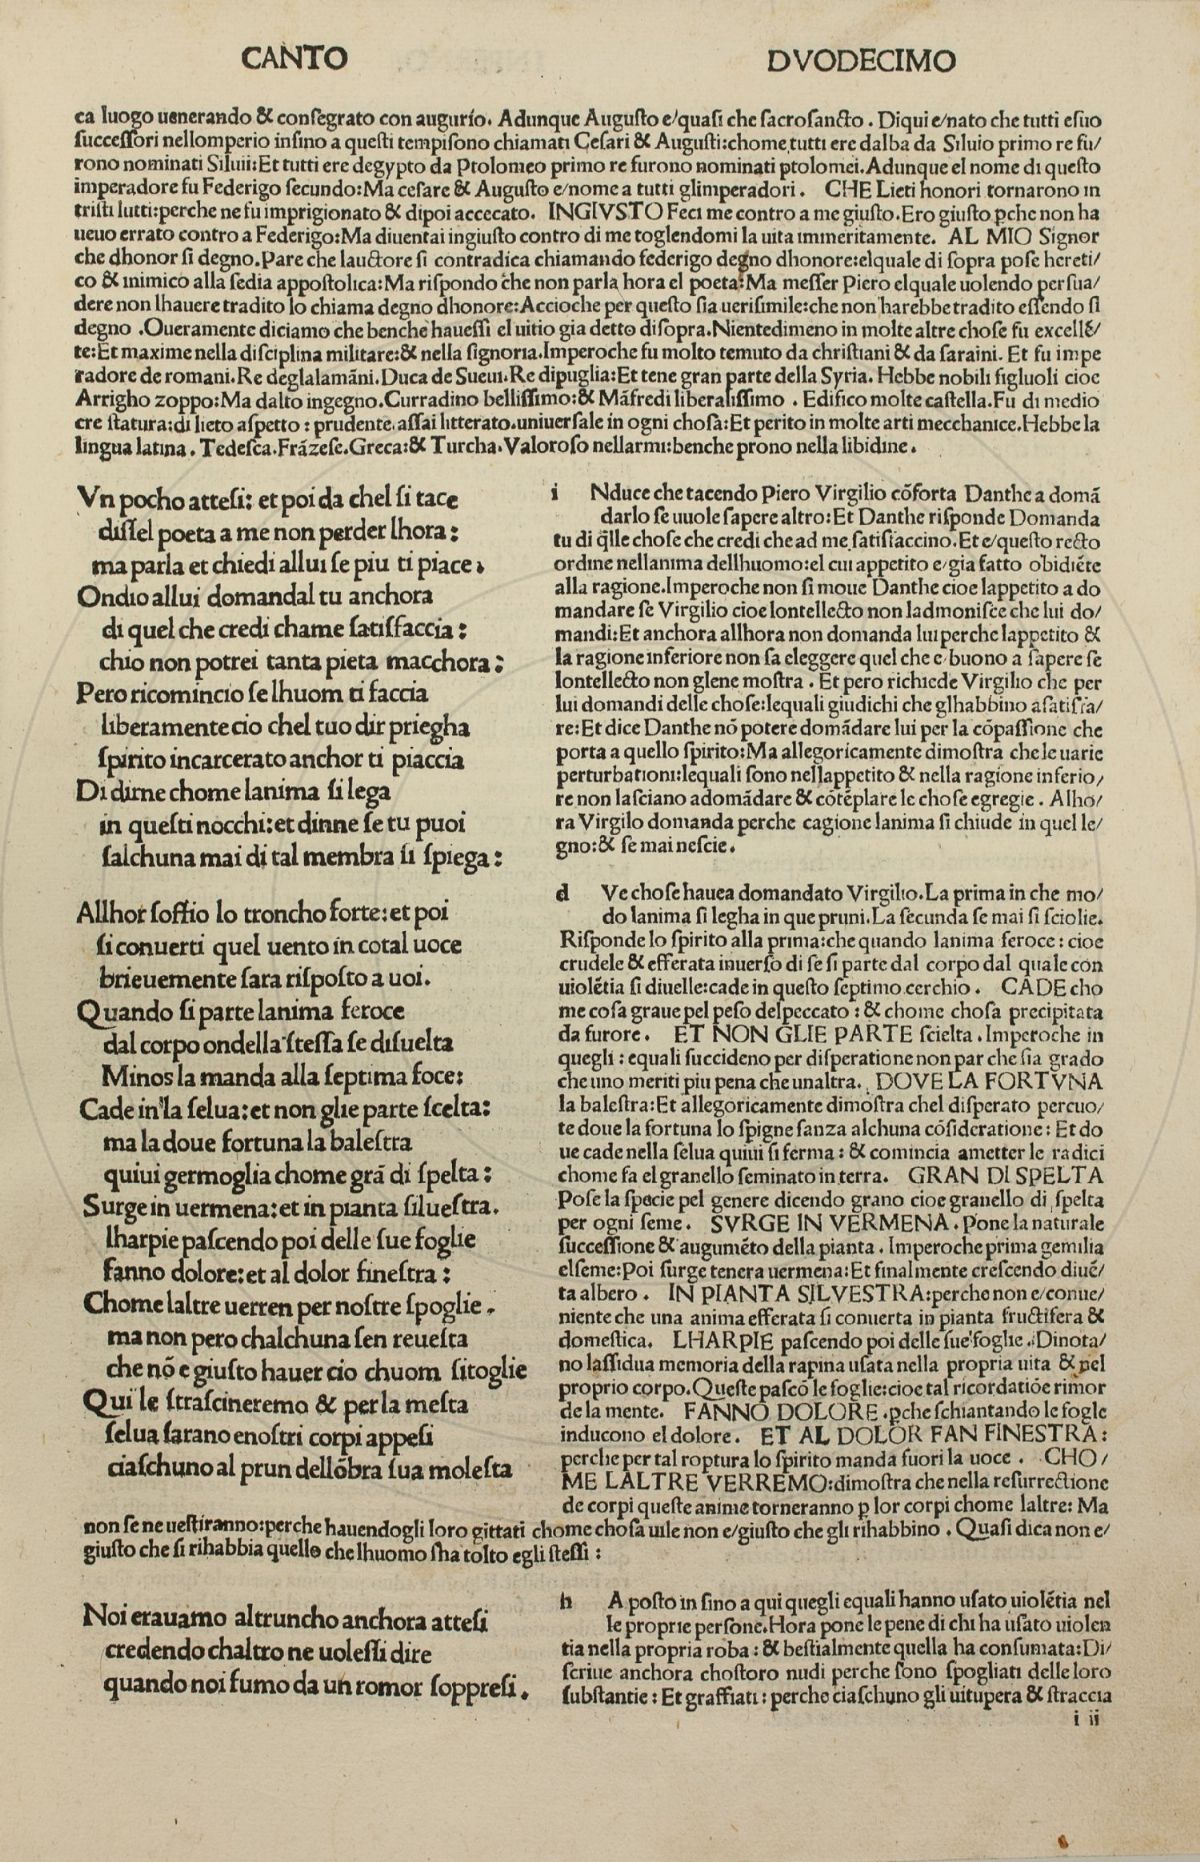 CANTO DVODECIMO
ca luogo uenerando & conſegrato con augurio. Adunque Auguſto e/quaſi che ſacroſancto. Diqui e/nato che tutti eſuo
ſucceſſori nellomperio inſino a queſti tempiſono chiamati Ceſari & Auguſti:chome tutti ere dalba da Siluio primo re fu/
rono nominati Siluii:Et tutti ere degypto da Ptolomeo primo re furono nominati ptolomei.Adunque el nome di queſto
imperadore fu Federigo ſecundo:Ma ceſare & Auguſto e/nome a tutti glimperadori. CHE Lieti honori tornarono in
triſti lutti:perche ne fu imprigionato & dipoi accecato. INGIVSTO Feci me contro a me giuſto.Ero giuſto ꝑche non ha
ueuo errato contro a Federigo:Ma diuentai ingiuſto contro di me toglendomi la uita immeritamente. AL MIO Signor
che dhonor ſi degno.Pare che lauctore ſi contradica chiamando federigo degno dhonore:elquale di ſopra poſe hereti/
co & inimico alla ſedia appoſtolica:Ma riſpondo che non parla hora el poeta:Ma meſſer Piero elquale uolendo perſua/
dere non lhauere tradito lo chiama degno dhonore:Accioche per queſto ſia ueriſimile:che non harebbe tradito eſſendo ſi
degno .Oueramente diciamo che benche haueſſi el uitio gia detto diſopra.Nientedimeno in molte altre choſe fu excellē/
te:Et maxime nella diſciplina militare:& nella ſignoria.Imperoche fu molto temuto da chriſtiani & da ſaraini. Et fu impe
radore de romani.Re deglalamāni.Duca de Sueui.Re dipuglia:Et tene gran parte della Syria. Hebbe nobili figluoli cioe
Arrigho zoppo:Ma dalto ingegno.Curradino belliſſimo:& Māfredi liberaliſſimo . Edifico molte caſtella.Fu di medio
cre ſtatura:di lieto aſpetto : prudente aſſai litterato.uniuerſale in ogni choſa:Et perito in molte arti mecchanice.Hebbe la
lingua latina. Tedeſca.Frāzeſe.Greca:& Turcha.Valoroſo nellarmi:benche prono nella libidine.
Vn pocho atteſi: et poi da chel ſi tace
diſſel poeta a me non perder lhora:
ma parla et chiedi allui ſe piu ti piace.
Ondio allui domandal tu anchora
di quel che credi chame ſatiſfaccia:
chio non potrei tanta pieta macchora:
Pero ricomincio ſe lhuom ti faccia
liberamente cio chel tuo dir priegha
ſpirito incarcerato anchor ti piaccia
Di dirne chome lanima ſi lega
in queſti nocchi:et dinne ſe tu puoi
ſalchuna mai di tal membra ſi ſpiega:
i Nduce che tacendo Piero Virgilio cōforta Danthe a domā
darlo ſe uuole ſapere altro:Et Danthe riſponde Domanda
tu di q̄lle choſe che credi che ad me ſatiſfaccino.Et e/queſto recto
ordine nellanima dellhuomo:el cui appetito e/gia fatto obidiēte
alla ragione.Imperoche non ſi moue Danthe cioe lappetito a do
mandare ſe Virgilio cioe lontellecto non ladmoniſce che lui do/
mandi:Et anchora allhora non domanda lui perche lappetito &
la ragione inferiore non ſa eleggere quel che e/buono a ſapere ſe
lontellecto non glene moſtra . Et pero richiede Virgilio che per
lui domandi delle choſe:lequali giudichi che glhabbino aſatiſfa/
re:Et dice Danthe nō potere domādare lui per la cōpaſſione che
porta a quello ſpirito:Ma allegoricamente dimoſtra che le uarie
perturbationi:lequali ſono nellappetito & nella ragione inferio/
re non laſciano adomādare & cōtēplare le choſe egregie . Alho/
ra Virgilo domanda perche cagione lanima ſi chiude in quel le/
gno:& ſe mai neſcie.
Allhor ſoffio lo troncho forte:et poi
ſi conuerti quel uento in cotal uoce
brieuemente ſara riſpoſto a uoi.
Quando ſi parte lanima feroce
dal corpo ondella ſteſſa ſe diſuelta
Minos la manda alla ſeptima foce:
Cade in la ſelua:et non glie parte ſcelta:
ma la doue fortuna la baleſtra
quiui germoglia chome grā di ſpelta:
Surge in uermena:et in pianta ſilueſtra.
lharpie paſcendo poi delle ſue foglie
fanno dolore:et al dolor fineſtra:
Chome laltre uerren per noſtre ſpoglie.
ma non pero chalchuna ſen reueſta
che nō e giuſto hauer cio chuom ſitoglie
Qui le ſtraſcineremo & per la meſta
ſelua ſarano enoſtri corpi appeſi
ciaſchuno al prun dellōbra ſua moleſta
d Ve choſe hauea domandato Virgilio.La prima in che mo/
do lanima ſi legha in que pruni.La ſecunda ſe mai ſi ſciolie.
Riſponde lo ſpirito alla prima:che quando lanima feroce: cioe
crudele & efferata inuerſo di ſe ſi parte dal corpo dal quale con
uiolētia ſi diuelle:cade in queſto ſeptimo cerchio. CADE cho
me coſa graue pel peſo delpeccato : & chome choſa precipitata
da furore. ET NON GLIE PARTE ſcielta.Imperoche in
quegli : equali ſuccideno per diſperatione non par che ſia grado
che uno meriti piu pena che unaltra. DOVE LA FORTVNA
la baleſtra:Et allegoricamente dimoſtra chel diſperato percuo/
te doue la fortuna lo ſpigne ſanza alchuna cōſideratione: Et do
ue cade nella ſelua quiui ſi ferma : & comincia ametter le radici
chome fa el granello ſeminato in terra. GRAN DI SPELTA
Poſe la ſpecie pel genere dicendo grano cioe granello di ſpelta
per ogni ſeme. SVRGE IN VERMENA.Pone la naturale
ſucceſſione & augumēto della pianta.Imperoche prima gemilia
elſeme:Poi ſurge tenera uermena:Et finalmente creſcendo diuē/
ta albero . IN PIANTA SILVESTRA:perche non e/conue/
niente che una anima efferata ſi conuerta in pianta fructifera &
domeſtica. LHARPIE paſcendo poi delle ſue foglie .Dinota/
no laſſidua memoria della rapina uſata nella propria uita & pel
proprio corpo.Queſte paſcō le foglie:cioe tal ricordatiōe rimor
de la mente. FANNO DOLORE.ꝑche ſchiantando le fogle
inducono el dolore. ET AL DOLOR FAN FINESTRA:
perche per tal roptura lo ſpirito manda fuori la uoce. CHO/
ME LALTRE VERREMO:dimoſtra che nella reſurrectione
de corpi queſte anime torneranno ꝑ lor corpi chome laltre: Ma
non ſe ne ueſtiranno:perche hauendogli loro gittati chome choſa uile non e/giuſto che gli rihabbino. Quaſi dica non e/
giuſto che ſi rihabbia quello che lhuomo ſha tolto egli ſteſſi :
Noi erauamo altruncho anchora atteſi
credendo chaltro ne uoleſſi dire
quando noi fumo da un romor ſoppreſi.
h A poſto in ſino a qui quegli equali hanno uſato uiolētia nel
le proprie perſone.Hora pone le pene di chi ha uſato uiolen
tia nella propria roba : & beſtialmente quella ha conſumata:Di/
ſcriue anchora choſtoro nudi perche ſono ſpogliati delle loro
ſubſtantie : Et graffiati : perche ciaſchuno gli uitupera & ſtraccia
i ii